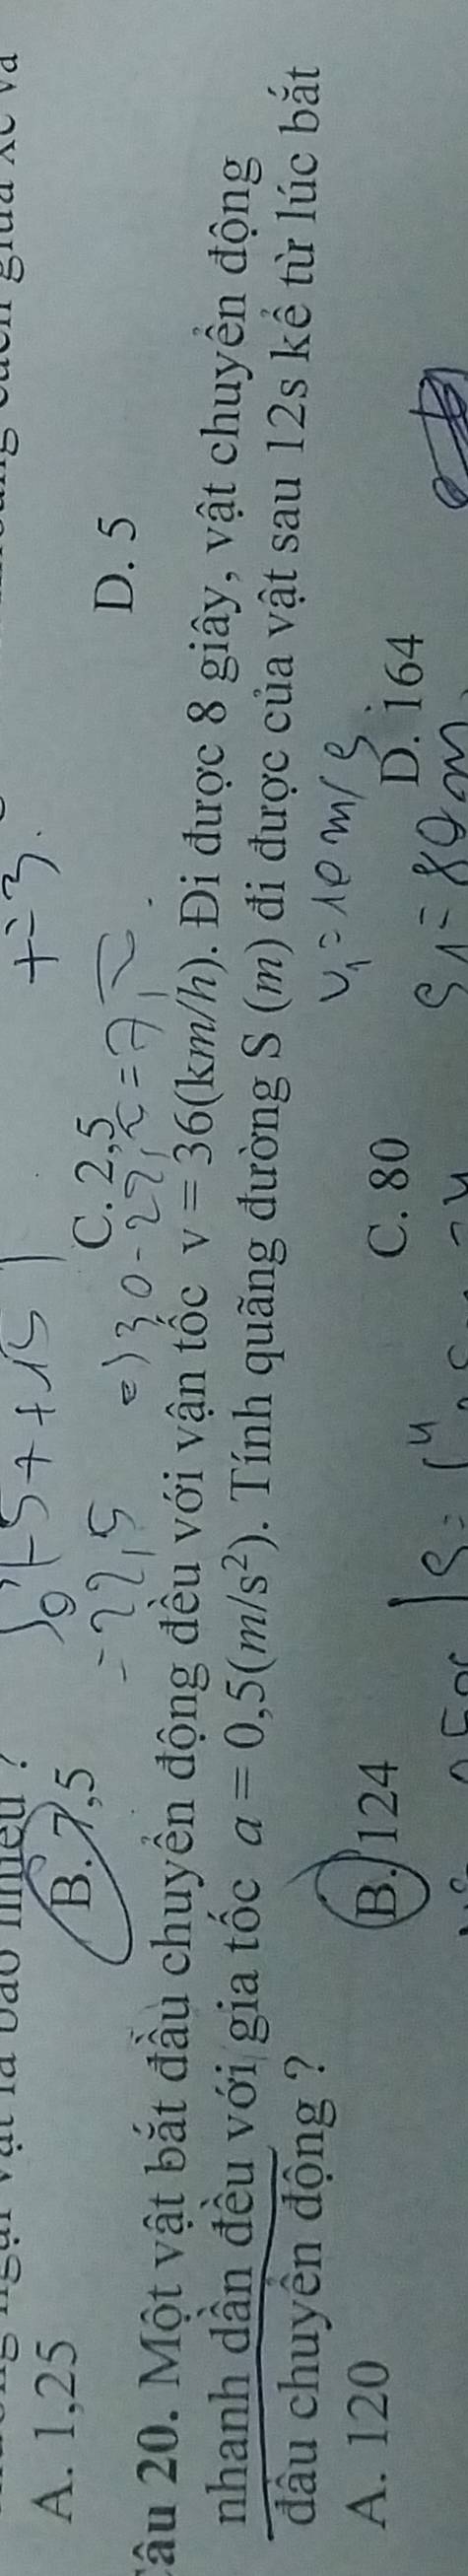 A. 1,25 B. 7,5 C. 2,5 D. 5
t=3.
-22,5 => 30-22,5=7,5
Câu 20. Một vật bắt đầu chuyển động đều với vận tốc v = 36(km/h). Đi được 8 giây, vật chuyển động
nhanh dần đều với gia tốc a = 0,5(m/s²). Tính quãng đường S (m) đi được của vật sau 12s kể từ lúc bắt
đầu chuyển động ?
v₁ = 10 m/s
A. 120 B. 124 C. 80 D. 164
S₁ = 80m